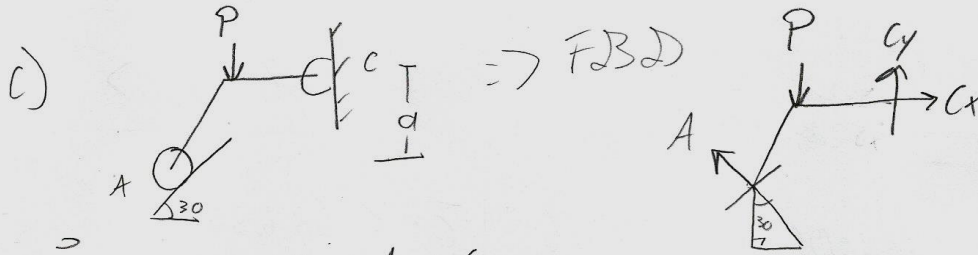 C)
P
C
a
A
30
=> FBD
P
Cy
Cx
A
30